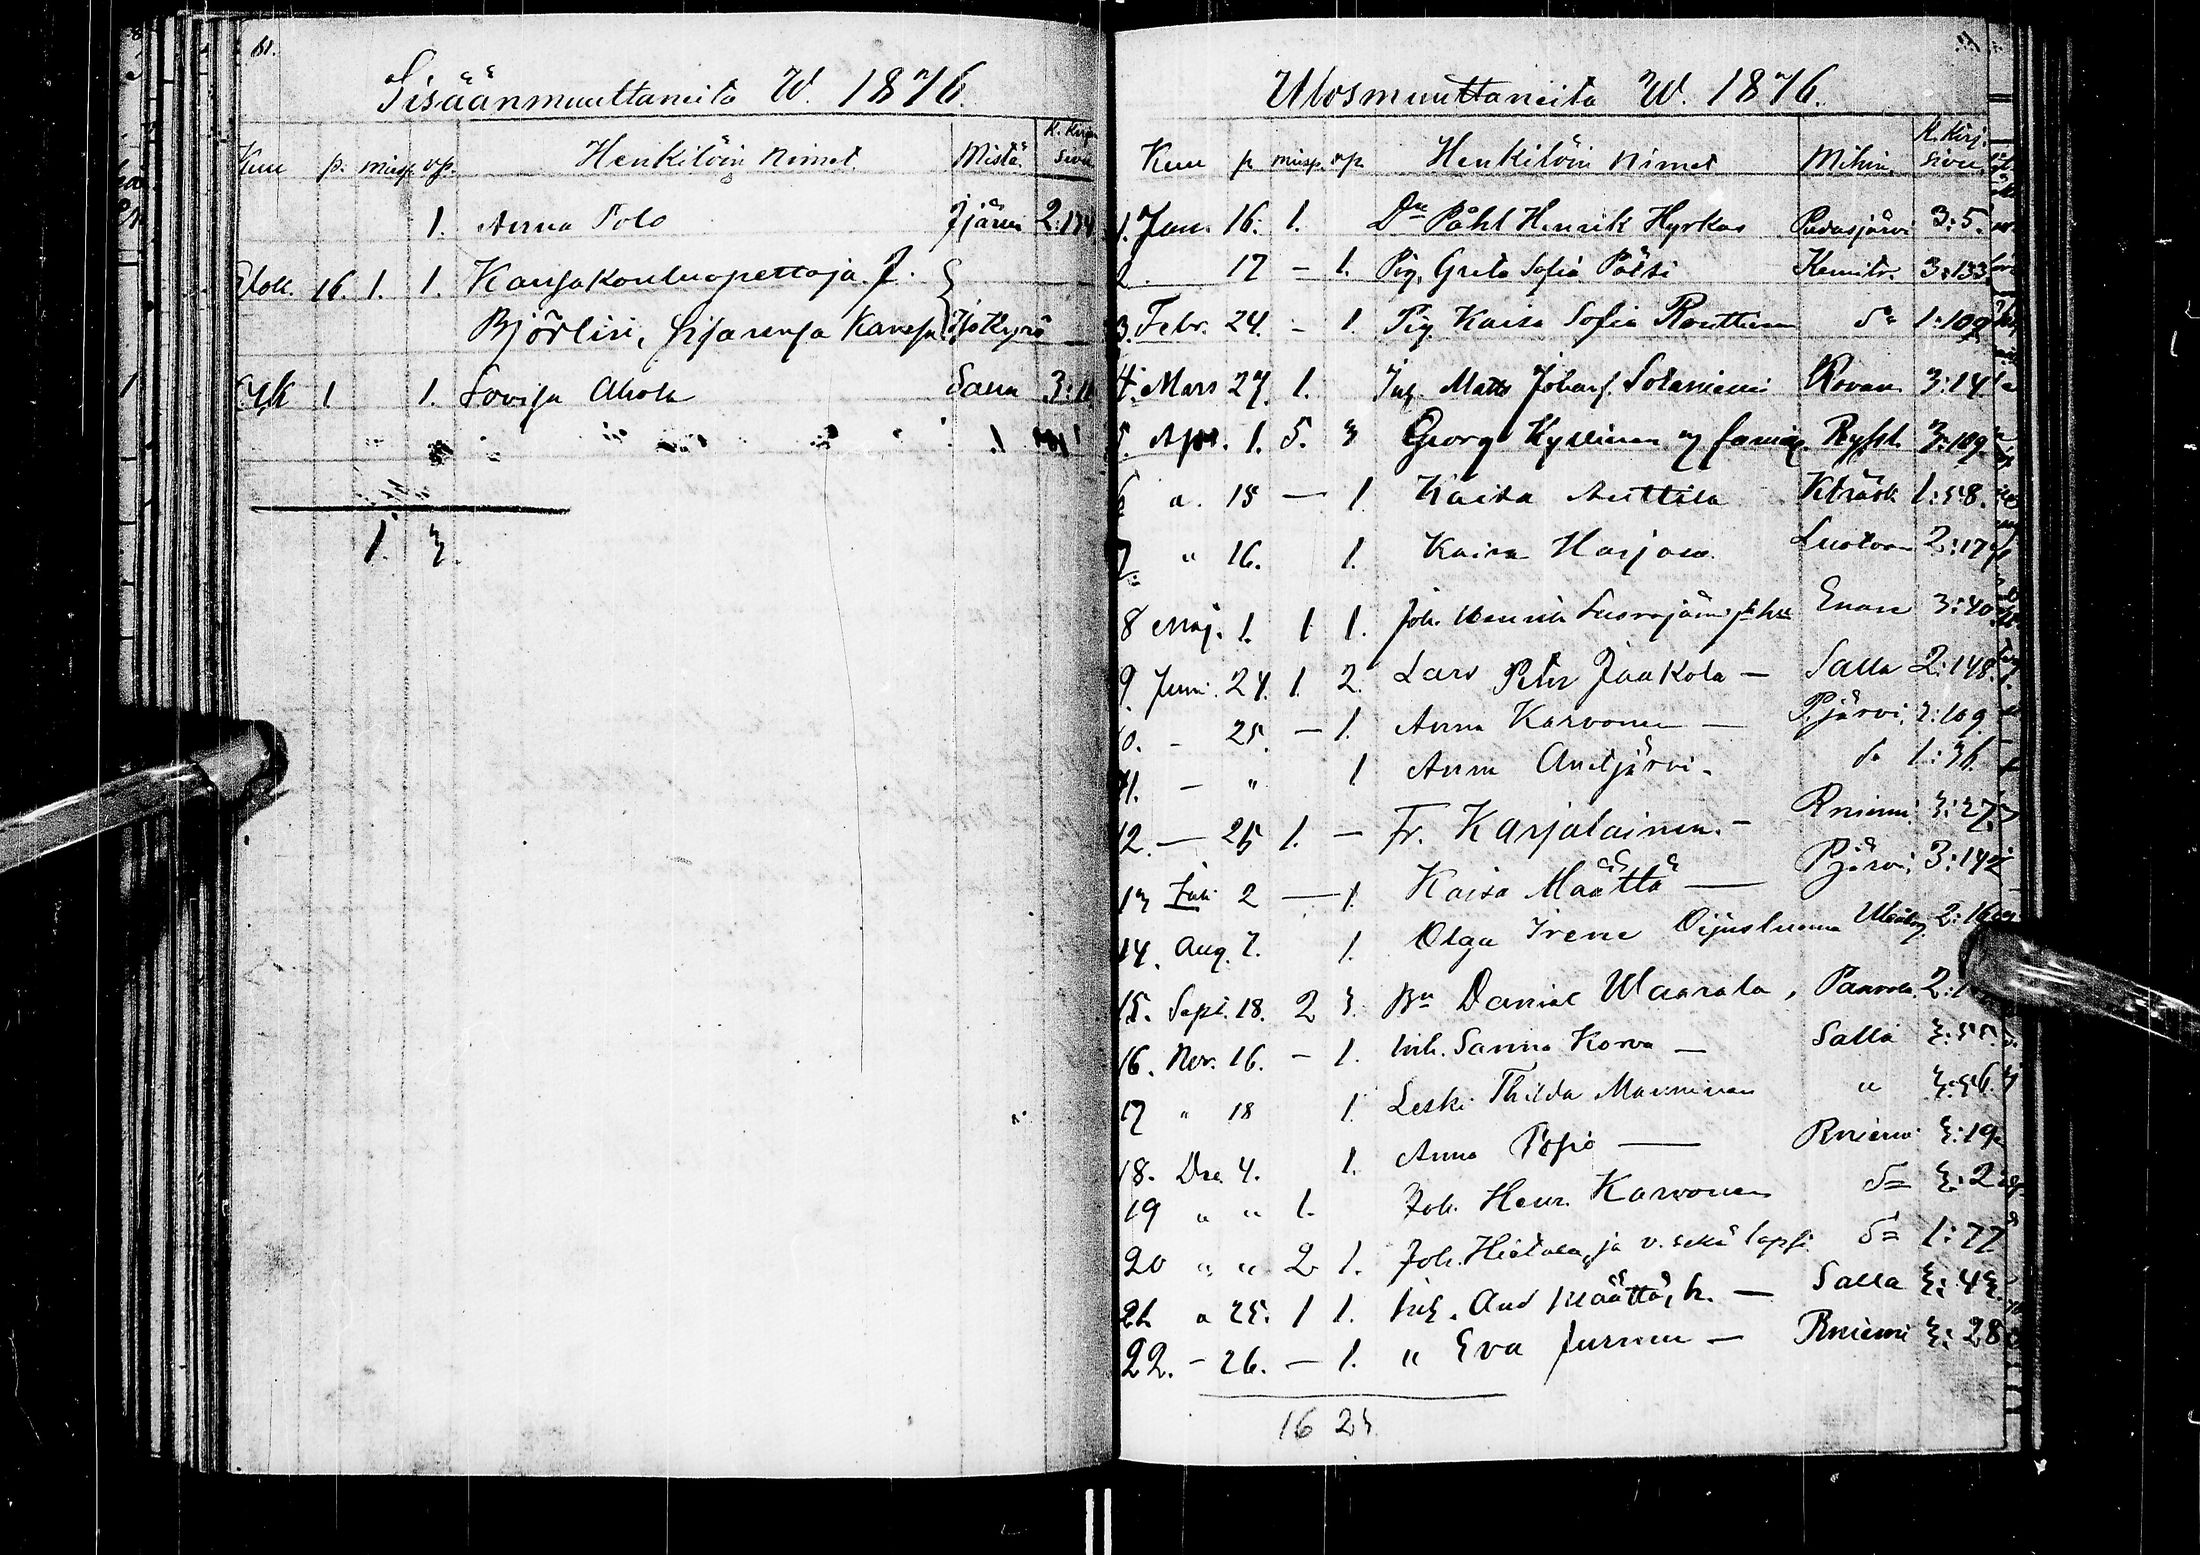 61.
Sisäänmuuttaneita W. 1876.
Kuu p. miesp. vp. Henkilöin nimet. Mistä K. Kirjan sivu
1. Anna Polo Jjärvi 2:134
Elok. 16. 1. 1. Kansakoulunopettaja J.
Björlin, sisarensa kanssa Isokyrö
Syk 1 1. Lovisa Ahola Salla 3:11
1. 3.
Ulosmuuttaneita W. 1876.
Kuu p. miesp. vp. Henkilöin nimet Mihin. K. Kirj. sivu.
1. Jan. 16. 1. Dn Påhl Henrik Hyrkas Pudasjärvi 3:5.
2. 17 — 1. Pig. Greta Sofia Pätsi Kemitr. 3:133
3. Febr. 24. - 1. Pig. Kaisa Sofia Routtinen do 1:109
4. Mars 27. 1. Inh. Matts Johans. Sotaniemi Rovan 3:14
5. Apr. 1. 5. 3 Georg Kyllinen familj. Ryssl. 3:109.
6 a. 15 — 1 Kaisa Anttila Kträsk 1:58.
7. " 16. 1. Kaisa Harjasu 2:17
8 Maj. 1. 1 1. Joh. Henrik Enare 3:40
9. Juni. 24. 1. 2. Lars Petter Jaakola — Salla 2:148.
10. - 25. — 1. Anna Karvonen — Pjärvi. 2:109
11. — " 1 Anna Autjärvi. do 1:36
12. — 25 1. — Fr. Karjalainen. — Rniemi 3:27.
13 Juli 2 — 1. Kaisa Määttä — Pjärvi, 3:142
14. Aug. 7. 1. Olga Irene Uleåbg. 2:16
15. Sept. 18. 2 3. Bn Daniel Waarala, Paavola. 2:1
16. Nov. 16. - 1. Inh. Sanna Korva — Salla 3:55.
17 " 18 1 Leski Thilda Manninen " 3:56.
18. Dec. 4. 1. Anna Posio — Rniemi 3:19
19 " " 1. Joh. Henr. Karvonen do 3:2
20 " " 2 1. Joh. Hietala, ja v. sekä lapsi. do 1:77
21 " 25. 1 1. Inh. And Määttä, h. — Salla 3:43.
22. - 26. — 1. " Eva Jurmu — Rniemi 3:28
16 23